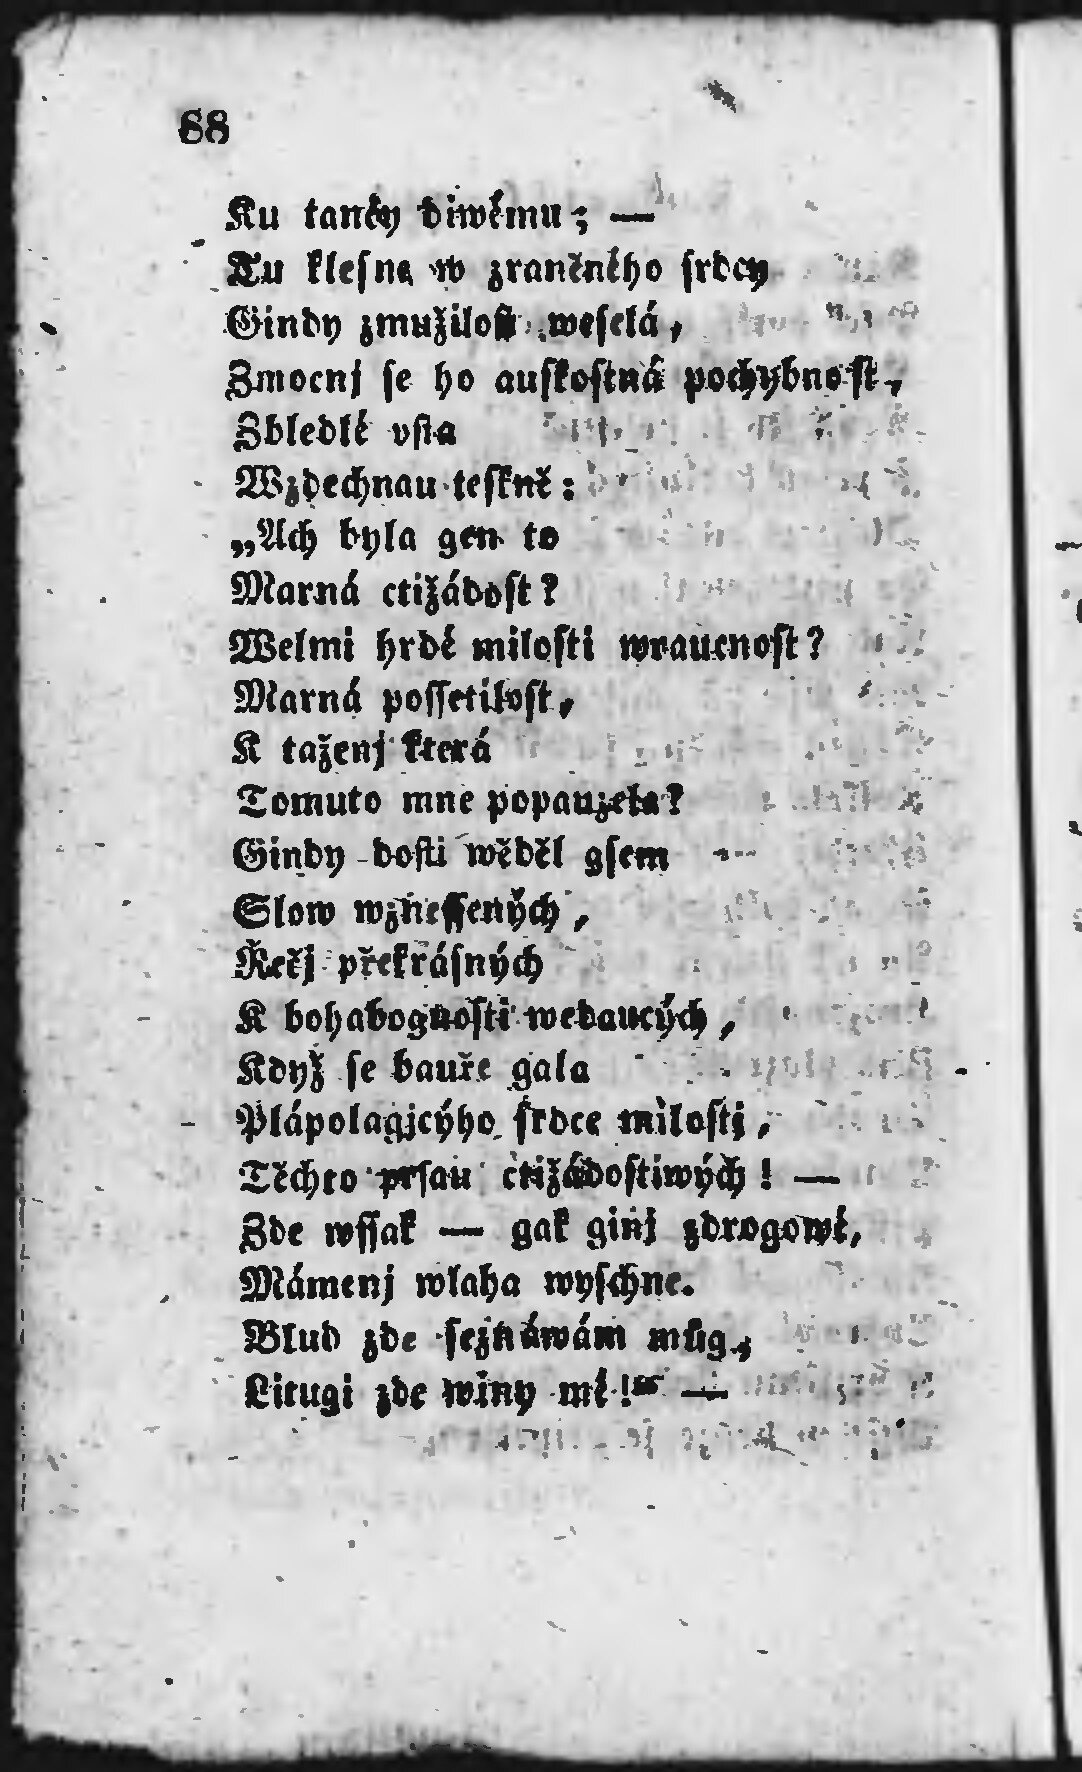 68
Ku tancy diwému; —
Tu klesne w zraněného srdcy
Gindy zmužilost weselá,
Zmocnj se ho auskostná pochybnost,
Zbledlé vsta
Wzdechnau teskně:
„Ach byla gen to
Marná ctižádost?
Welmi hrdé milosti wraucnost?
Marná possetilost,
K taženj která
Tomuto mne popauzela?
Gindy dosti wěděl gsem
Slow wznessených,
Řečj překrásných
K bohabognosti wedaucých,
Když se bauře gala
Plápolagjcýho srdce milostj,
Těchto prsau ctižádostiwých! —
Zde wssak — gak ginj zdrogowé,
Mámenj wlaha wyschne.
Blud zde seznáwám můg,
Litugi zde winy mé!“ —